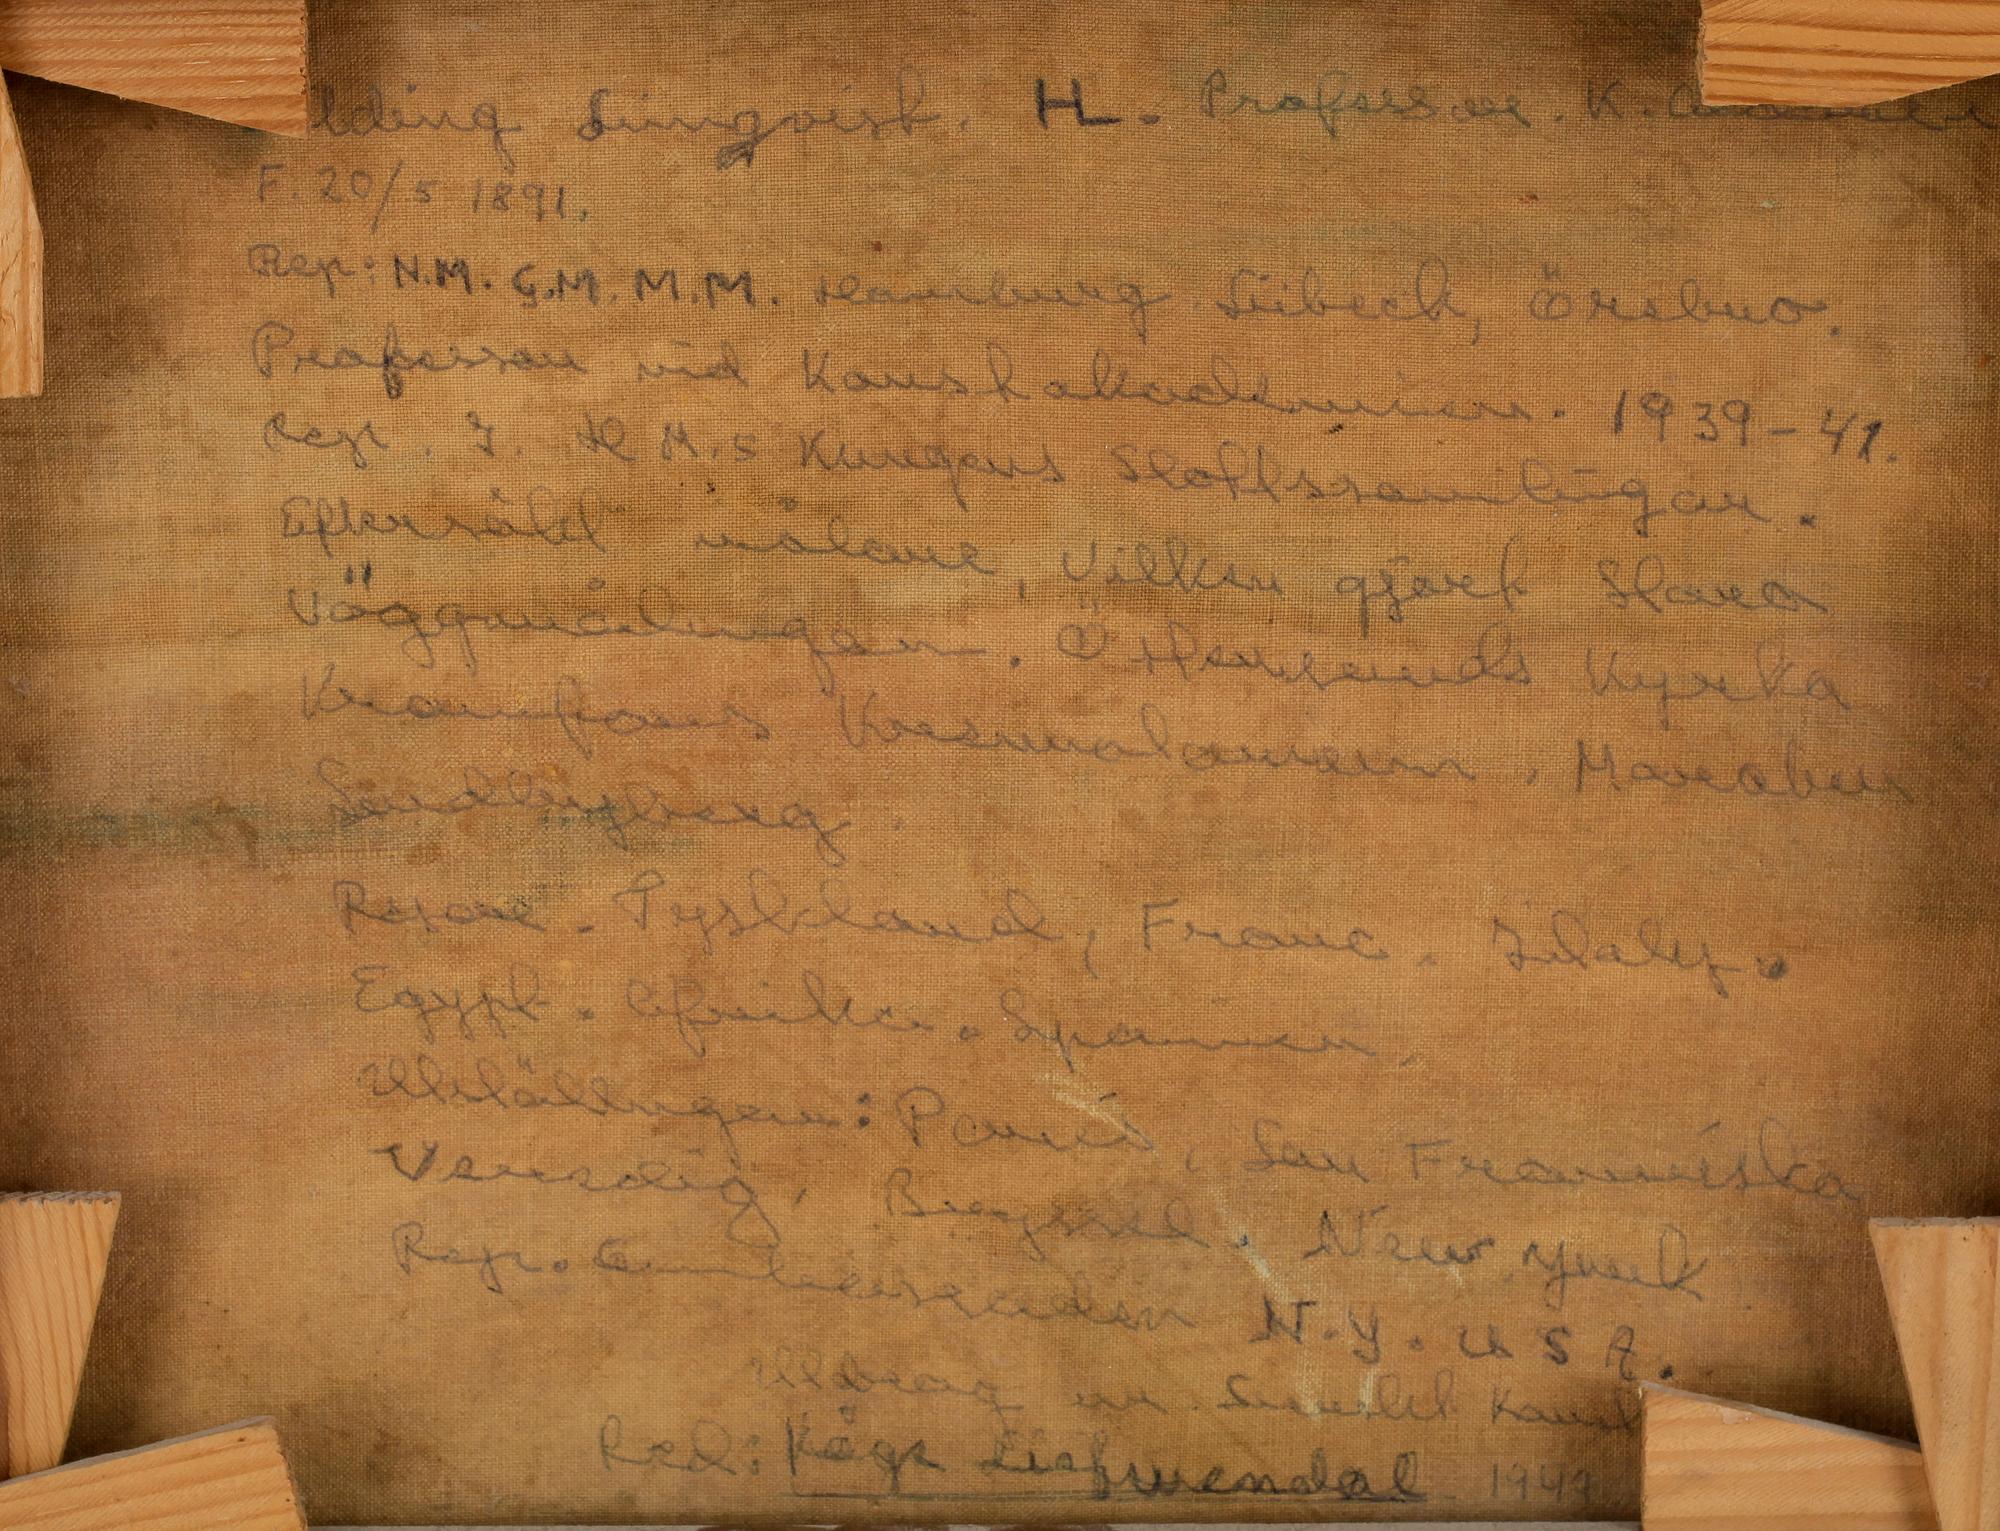 lding Linnqvist. H. Professor. K.
F. 20/5 1891.
Rep: N.M. G.M. M.M. Hamburg. Lübeck, Örebro.
Professor vid Konstakademien. 1939-41.
Rep. I. H M.s Kungens Slottssamlingar.
Eftersökt målare, Vilken gjort Stora
Väggmålningar. Ö Kyrka
Kramfors . Marabou
Sundbyberg.
Resor. Tyskland, Franc. Italy.
Egypt. Afrika. Spanien.
Utställningar: Paris, San Franciska
Venedig, Bryssel. New York
Rep. N.Y. U S A.
Utdrag ur. Svenskt Konst
Red: Kåge Liefwendal 1949